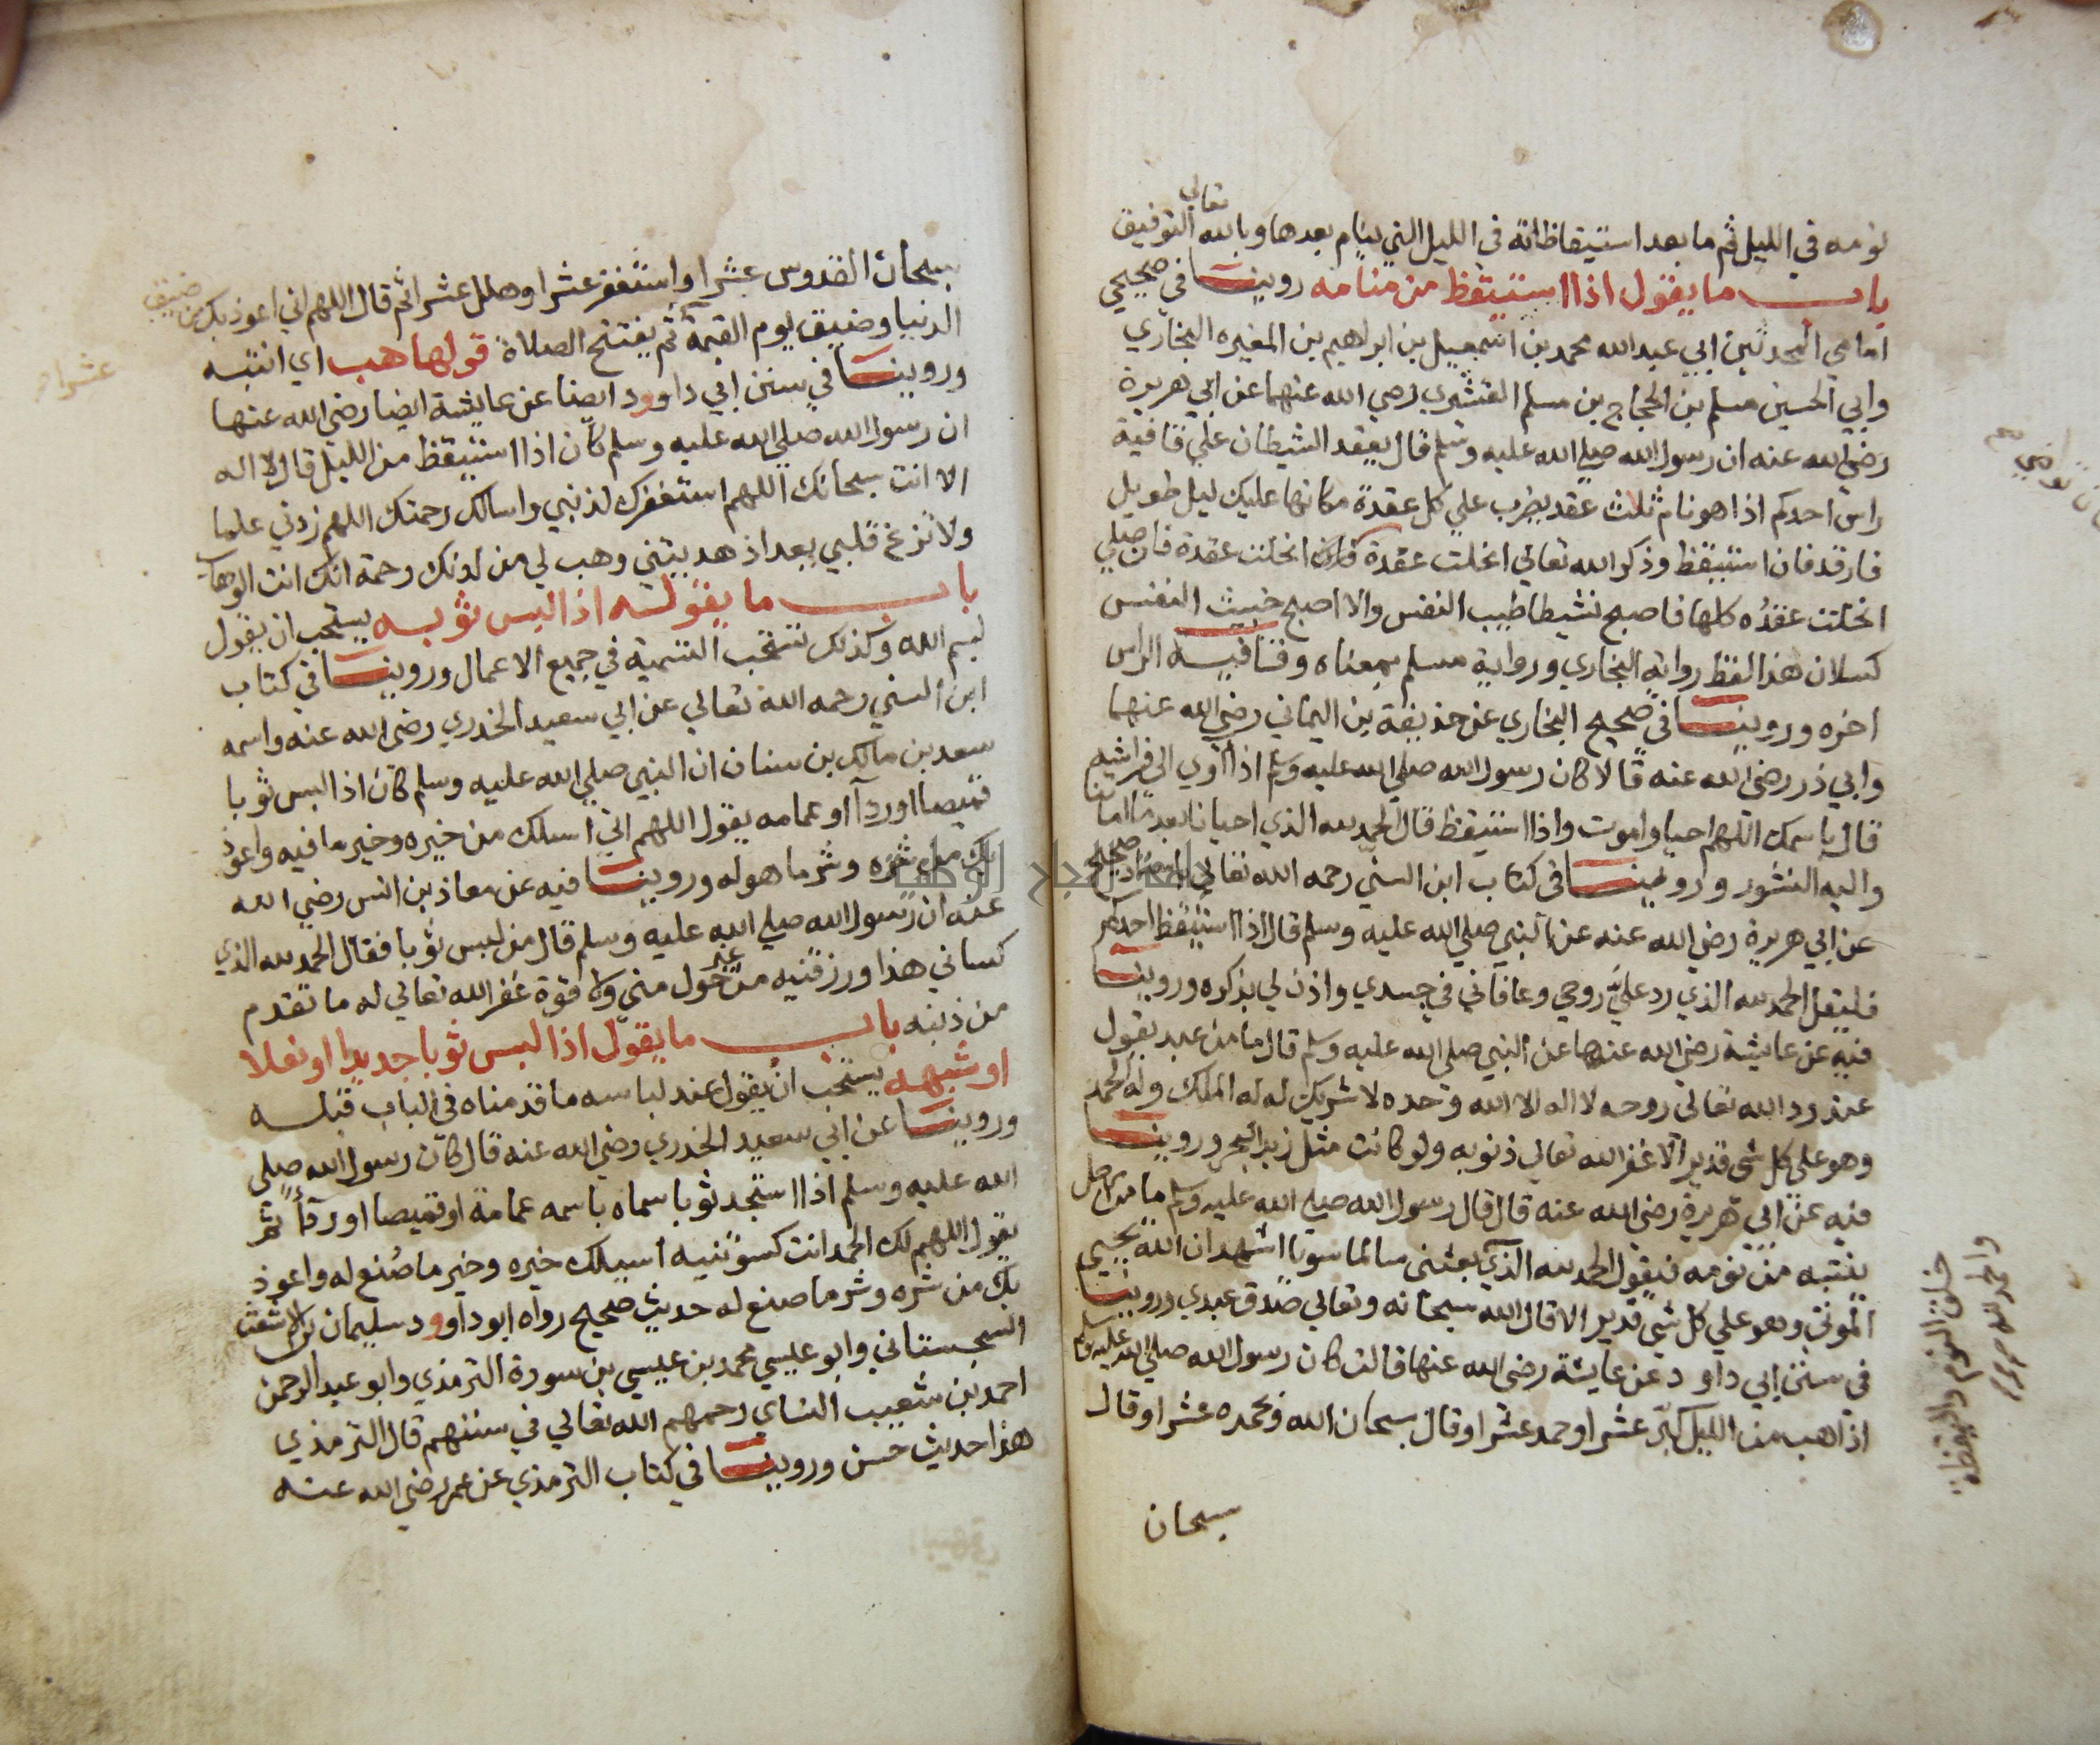 تعالي
نومه في الليل ثم ما بعد استيقاظاته في الليل التي ينام بعدها وبالله التوفيق
باب ما يقول اذا استيقظ من منامه روينا في صحيحي
امامي المحدثين ابي عبد الله محمد بن اسمعيل بن ابراهيم بن المغيره البخاري
وابي الحسين مسلم بن الحجاج بن مسلم القشيري رضي الله عنهما عن ابي هريرة
رضي الله عنه ان رسول الله صلي الله عليه وسلم قال يعقد الشيطان علي قافية
راس احدكم اذا هو نام ثلاث عقد يضرب علي كل عقدة مكانها عليك ليل طويل
فارقد فان استيقظ وذكر الله تعالي انحلت عقدة فان انحلت عقدة فان صلي
انحلت عقده كلها فاصبح نشيطا طيب النفس والا اصبح خبيث النفس
كسلان هذا لفظ رواية البخاري ورواية مسلم بمعناه وقافية الراس
اخره وروينا في صحيح البخاري عن حذيفة بن اليماني رضي الله عنهما
وابي ذر رضي الله عنه قالا كان رسول الله صلي الله عليه وسلم اذا اوي الي فراشه
قال باسمك اللهم احيا واموت واذا استيقظ قال الحمد لله الذي احيانا بعد ما اماتنا
واليه النشور وروينا في كتاب ابن السني رحمه الله تعالي باسناد صحيح
عن ابي هريرة رضي الله عنه عن النبي صلي الله عليه وسلم قال اذا استيقظ احدكم
فليقل الحمد لله الذي رد علي روحي وعافاني في جسدي واذن لي بذكره وروينا
فيه عن عايشة رضي الله عنها عن النبي صلي الله عليه وسلم قال ما من عبد يقول
عند رد الله تعالي روحه لا اله الا الله وحده لا شريك له له الملك وله الحمد
وهو علي كل شي قدير الا غفر الله تعالي ذنوبه ولو كانت مثل زبد البحر وروينا
فيه عن ابي هريرة رضي الله عنه قال قال رسول الله صلي الله عليه وسلم ما من رجل
ينتبه من نومه فيقول الحمد لله الذي بعثني سالما سويا اشهد ان الله يحيي
الموتي وهو علي كل شي قدير الا قال الله سبحانه وتعالي صدق عبدي وروينا
في سنن ابي داود عن عايشة رضي الله عنها قالت كان رسول الله صلي الله عليه وسلم
اذا هب من الليل كبر عشرا وحمد عشرا وقال سبحان الله وبحمده عشرا وقال
سبحان
خلق النوم واليقظة
والحمد لله
سبحان القدوس عشرا واستغفر عشرا وهلل عشرا ثم قال اللهم اني اعوذ بك من ضيق
الدنيا وضيق يوم القيمة ثم يفتتح الصلاة قولها هب اي انتبه
عشرا
وروينا في سنن ابي داوود ايضا عن عايشة ايضا رضي الله عنها
ان رسول الله صلي الله عليه وسلم كان اذا استيقظ من الليل قال لا اله
الا انت سبحانك اللهم استغفرك لذنبي واسالك رحمتك اللهم زدني علما
ولا تزغ قلبي بعد اذ هديتني وهب لي من لدنك رحمة انك انت الوهاب
باب ما يقوله اذا لبس ثوبه يستحب ان يقول
بسم الله وكذلك تستحب التسمية في جميع الاعمال وروينا في كتاب
ابن السني رحمه الله تعالي عن ابي سعيد الخدري رضي الله عنه واسمه
سعد بن مالك بن سنان ان النبي صلي الله عليه وسلم كان اذا لبس ثوبا
قميصا او ردآ او عمامه يقول اللهم اني اسلك من خيره وخير ما فيه واعوذ
بك من شره وشر ما هو له وروينا فيه عن معاذ بن انس رضي الله
عنه ان رسول الله صلي الله عليه وسلم قال من لبس ثوبا فقال الحمد لله الذي
كساني هذا ورزقنيه من غير حول مني ولا قوة غفر الله تعالي له ما تقدم
من ذنبه باب ما يقول اذا لبس ثوبا جديدا او نعلا
او شبهه يستحب ان يقول عند لباسه ما قدمناه في الباب قبله
وروينا عن ابي سعيد الخدري رضي الله عنه قال كان رسول الله صلي
الله عليه وسلم اذا استجد ثوبا سماه باسمه عمامة او قميصا او ردآ ثم
يقول اللهم لك الحمد انت كسوتنيه اسيلك خيره وخير ما صنع له واعوذ
بك من شره وشر ما صنع له حديث صحيح رواه ابو داوود سليمان بن الاشعث
السجستاني وابو عليسي محمد بن عيسي بن سورة الترمذي وابو عبد الرحمن
احمد بن شعيب النساي رحمهم الله تعالي في سننهم قال الترمذي
هذا حديث حسن وروينا في كتاب الترمذي عن عمر رضي الله عنه